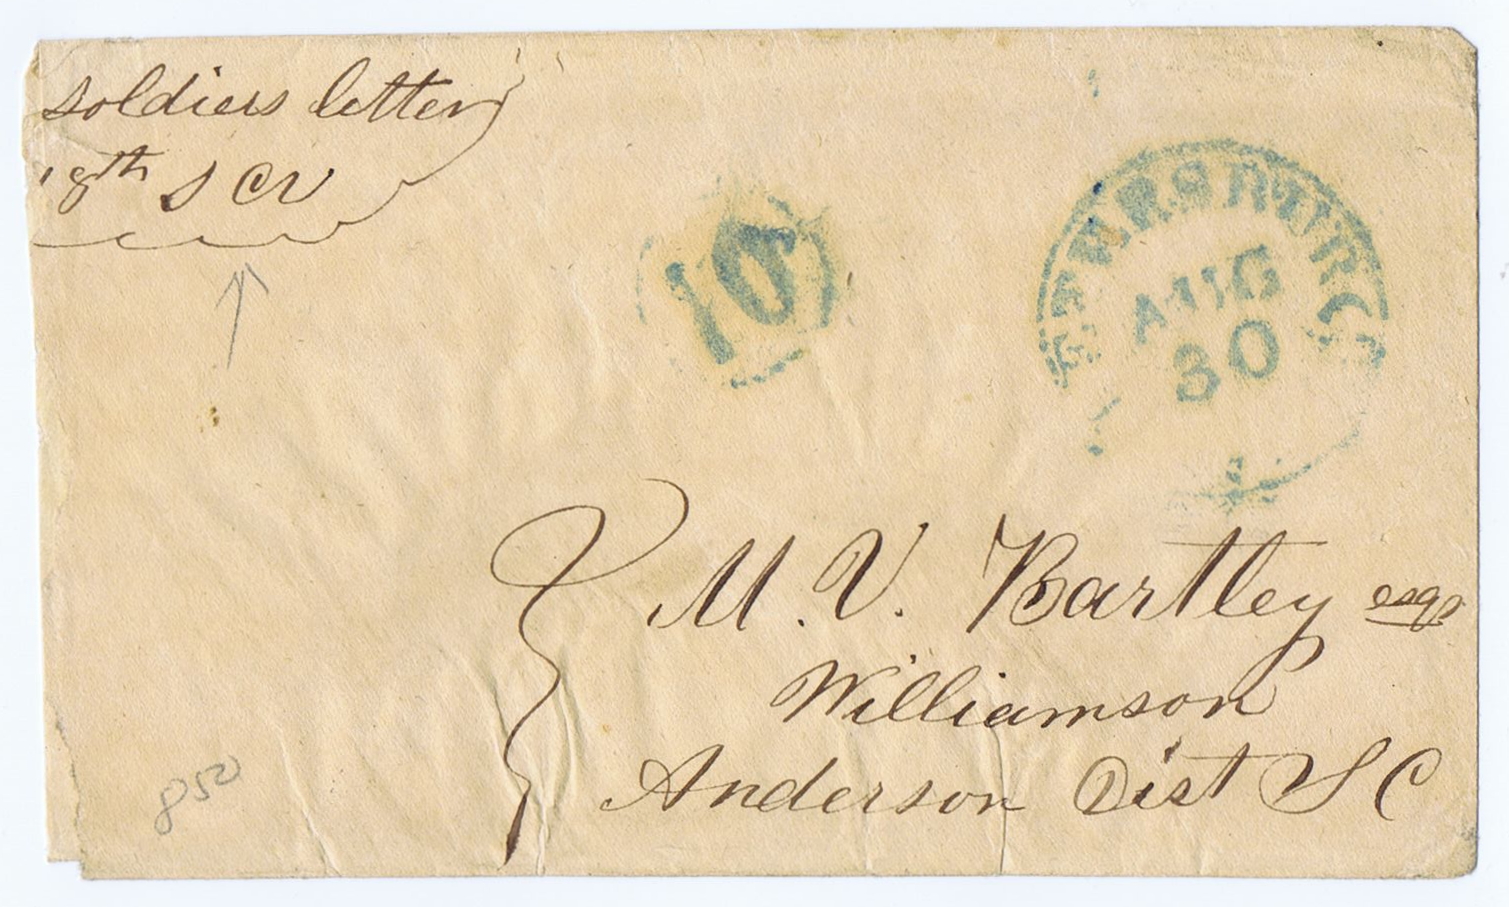 soldiers letter
18th S C V
10
PETERSBURG
AUG
30
M. V. Bartley esqr
Williamson
Anderson Dist S C
850